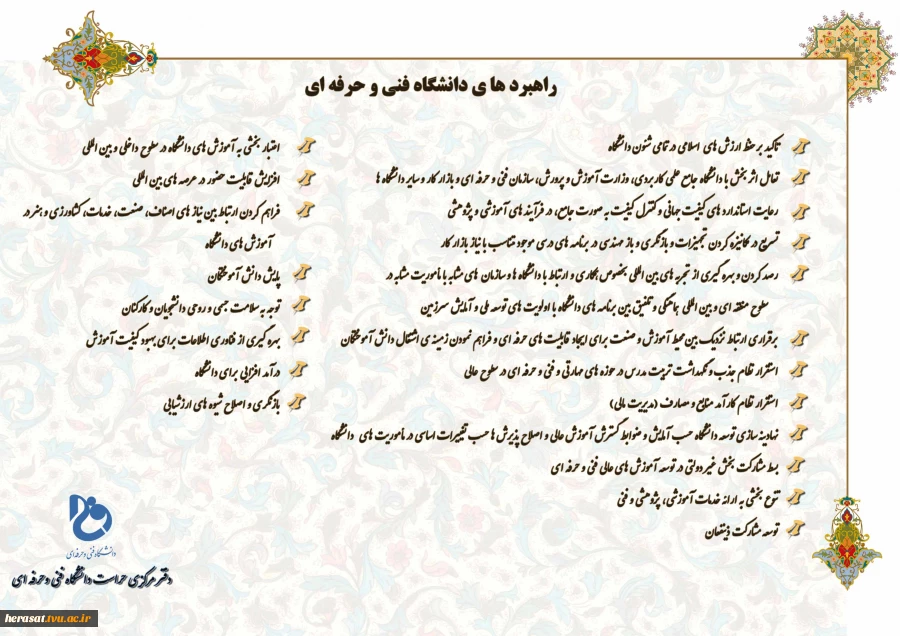 راهبرد های دانشگاه فنی و حرفه ای
تاکید بر حفظ ارزش های اسلامی در تمامی شئون دانشگاه
تعامل اثر بخش با دانشگاه جامع علمی کاربردی، وزارت آموزش و پرورش، سازمان فنی و حرفه ای و بازار کار و سایر دانشگاه ها
رعایت استاندارد های کیفیت جهانی و کنترل کیفیت به صورت جامع، در فرآیند های آموزشی و پژوهشی
تسریع در مکانیزه کردن تجهیزات و بازنگری و باز مهندسی در برنامه های درسی موجود متناسب با نیاز بازار کار
رصد کردن و بهره گیری از تجربه های بین المللی بخصوص همکاری و ارتباط با دانشگاه ها و سازمان های مشابه با مأموریت مشابه در
سطوح منطقه ای و بین المللی هماهنگی و تلفیق بین برنامه های دانشگاه با اولویت های توسعه ملی و آمایش سرزمین
برقراری ارتباط نزدیک بین محیط آموزش و صنعت برای ایجاد قابلیت های حرفه ای و فراهم نمودن زمینه ی اشتغال دانش آموختگان
استقرار نظام جذب و نگهداشت تربیت مدرس در حوزه های مهارتی و فنی و حرفه ای در سطوح عالی
استقرار نظام کارآمد منابع و مصارف (مدیریت مالی)
نهادینه سازی توسعه دانشگاه حسب آمایش و ضوابط گسترش آموزش عالی و اصلاح پذیرش ها حسب تغییرات اساسی در مأموریت های دانشگاه
بسط مشارکت بخش غیر دولتی در توسعه آموزش های عالی فنی و حرفه ای
تنوع بخشی به ارائه خدمات آموزشی، پژوهشی و فنی
توسعه مشارکت ذینفعان
اعتبار بخشی به آموزش های دانشگاه در سطوح داخلی و بین المللی
افزایش قابلیت حضور در عرصه های بین المللی
فراهم کردن ارتباط بین نیاز های اصناف، صنعت، خدمات، کشاورزی و هنر در
آموزش های دانشگاه
پایش دانش آموختگان
توجه به سلامت جسمی و روحی دانشجویان و کارکنان
بهره گیری از فناوری اطلاعات برای بهبود کیفیت آموزش
درآمد افزایی برای دانشگاه
بازنگری و اصلاح شیوه های ارزشیابی
دانشگاه فنی و حرفه ای
دفتر مرکزی حراست دانشگاه فنی و حرفه ای
herasat.tvu.ac.ir